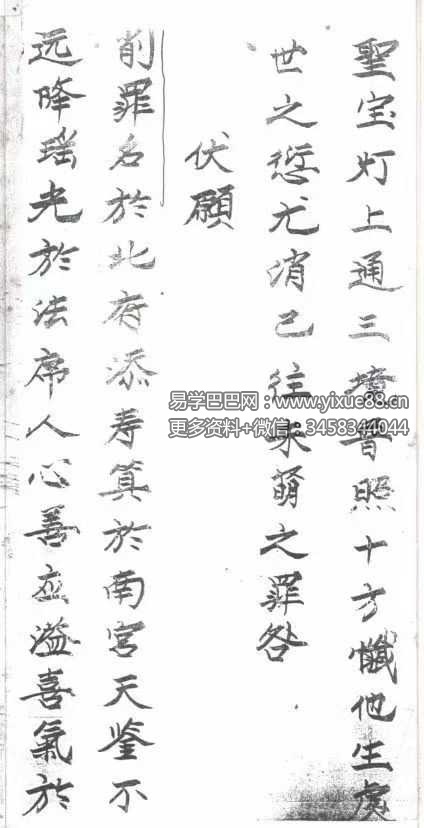 聖宝灯上通三境普照十方懺他生
世之愆尤消已往未萌之罪咎
伏願
削罪名於北府添寿算於南宮天鉴不
远降瑶光於法席人心善应溢喜氣於
易学巴巴网：www.yixue88.cn
更多资料+微信：3458344044